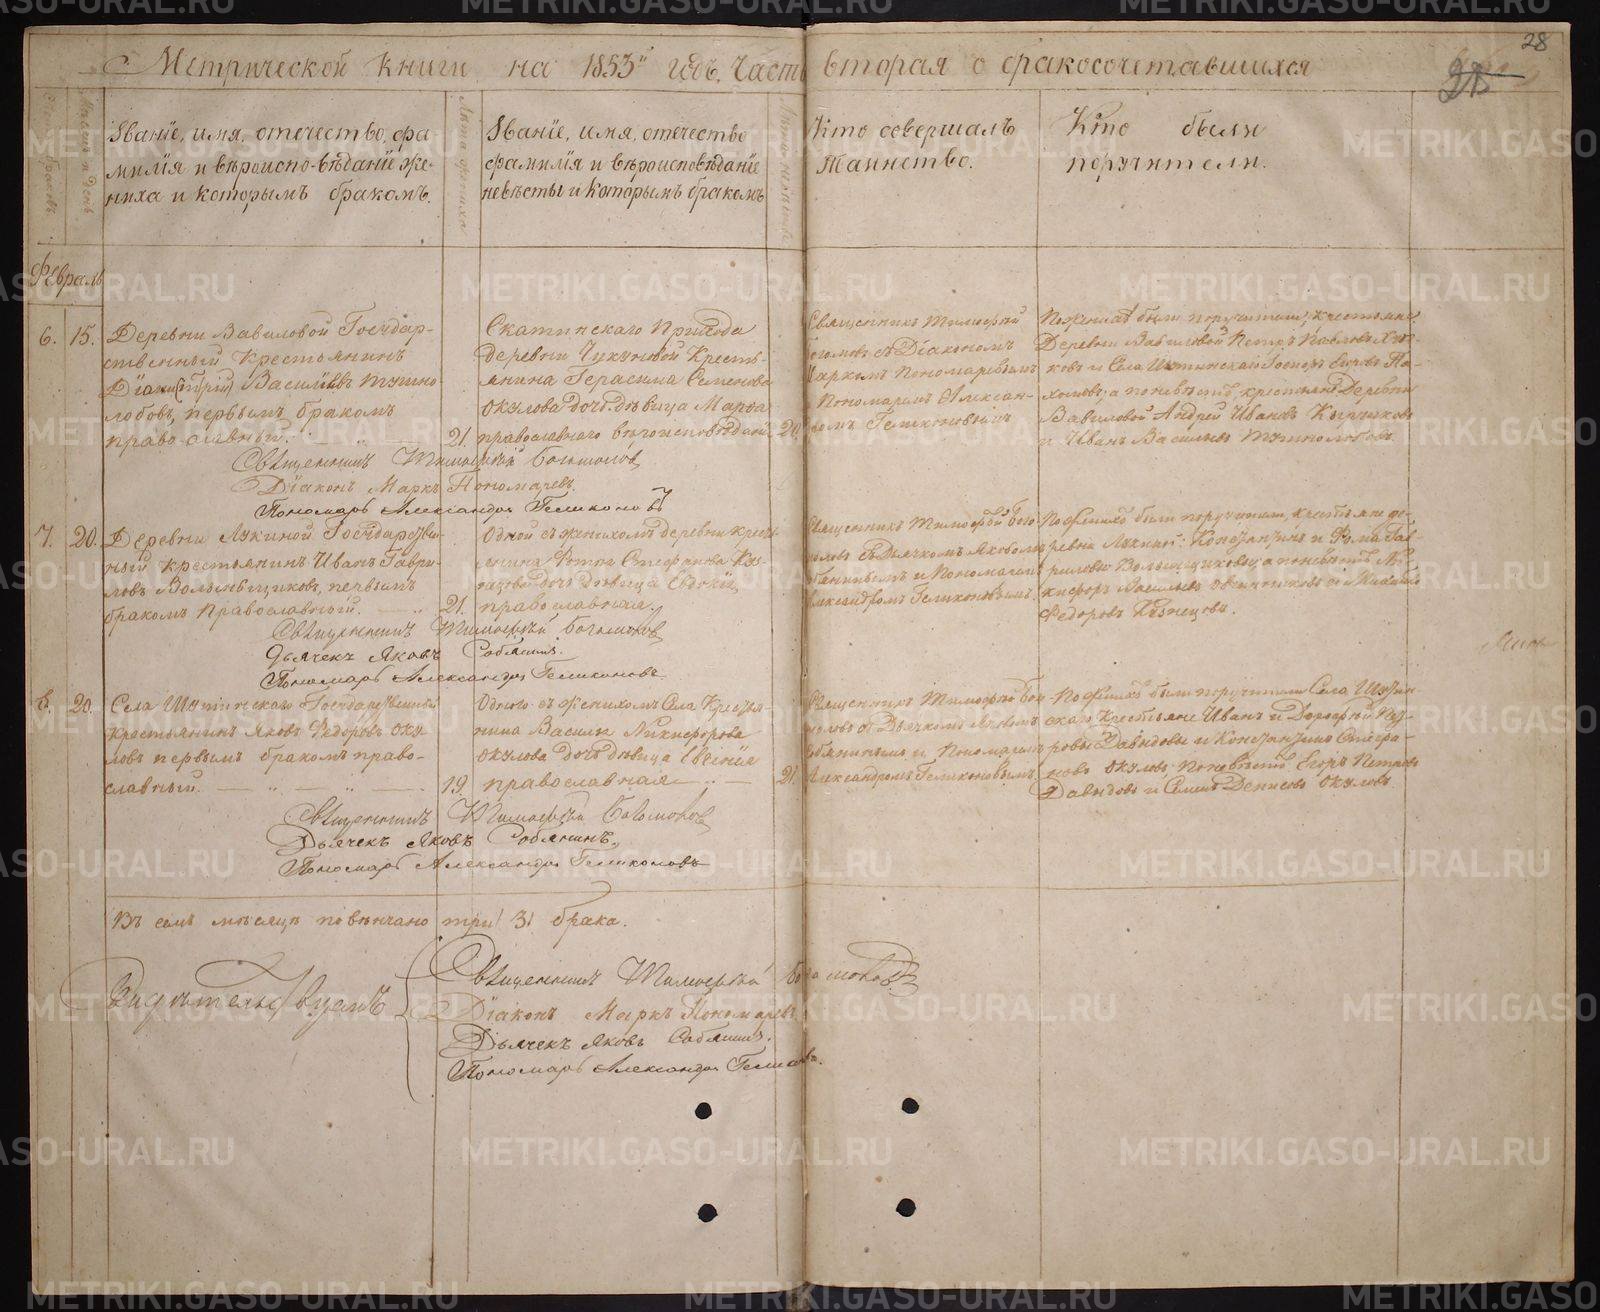 28
Метрической книги на 1853й годъ, часть вторая о бракосочетавшихся
Званіе, имя, отечество, фа-
милія и вѣроиспо-вѣданіе же-
ниха и которымъ бракомъ.
Лѣта жениха
Званіе, имя, отечество
фамилія и вѣроисповѣданіе
невѣсты и которымъ бракомъ
Кто совершалъ
таинство.
Кто были
поручители.
Февраль
6. 15.
Деревни Вавиловой Государ-
ственный крестьянинъ
Василіевъ Тушно-
лобовъ, первымъ бракомъ
православный. 21.
Скатинскаго Прихода
деревни Чукуновой Кресть-
янина Герасима Семенова
Окулова дочь дѣвица Марѳа
православнаго вѣроисповѣданія 20
Священникъ Тимоѳей
Богомоловъ съ Діакономъ
Маркомъ Пономаревымъ
Пономаремъ Алексан-
дромъ Геликоновымъ
Деревни Вавиловой Петръ Павловъ
Вавиловой Андрей Ивановъ
и Иванъ Васильевъ Тушнолобовъ.
Священникъ Тимоѳей Богомолов
Діаконъ Маркъ Пономаревъ.
Пономарь Александръ Геликоновъ
7. 20.
Деревни Лукиной Государствен-
ный крестьянинъ Иванъ Гаври-
ловъ Волынщиковъ, первымъ
бракомъ православный. 21.
Одной съ женихомъ деревни крестья-
янина Фотия Стефанова Куз-
нецова дочь дѣвица Евдокия
православная.
Священникъ Тимоѳей Бого-
моловъ съ Дьячкомъ Яковомъ
Собянинымъ и Пономаремъ
Александромъ Геликоновымъ.
По женихѣ были поручители, крестьяне де-
ревни Лукиной: Константинъ и Ѳома Гав-
риловы Волынщиковы, а по невѣстѣ Ни-
кифоръ Васильевъ Овчинниковъ и Михайло
Федоровъ Кузнецовъ.
Священникъ Тимоѳей Богомолов
Дьячекъ Яковъ Собянинъ.
Пономарь Александръ Геликоновъ
8. 20.
Села Шутинскаго Государственный
крестьянинъ Яковъ Федоровъ Оку-
ловъ первымъ бракомъ право-
славный. 19
Одного съ женихомъ Села Крестья-
нина Васили Никифорова
Окулова дочь дѣвица Евгенія
православная 21.
Священникъ Тимоѳей Бого-
моловъ съ Дьячкомъ Яковомъ
Собянинымъ и Пономаремъ
Александромъ Геликоновымъ.
По женихѣ были поручители Села Шутин-
скаго Крестьяне Иванъ и Дороѳей Пет-
ровы Давыдовы и Константинъ Стефа-
новъ Окуловъ. По невѣстѣ Егоръ Петровъ
Давыдовъ и Семенъ Денисовъ Окуловъ
Священникъ Тимоѳей Богомолов
Дьячекъ Яковъ Собянинъ.
Пономарь Александръ Геликоновъ
Въ семъ мѣсяцѣ повѣнчано три 3 брака.
Свидѣтельствуемъ
Священникъ Тимоѳей Богомолов
Діаконъ Маркъ Пономаревъ
Дьячекъ Яковъ Собянинъ.
Пономарь Александръ Геликоновъ.
METRIKI.GASO-URAL.RU